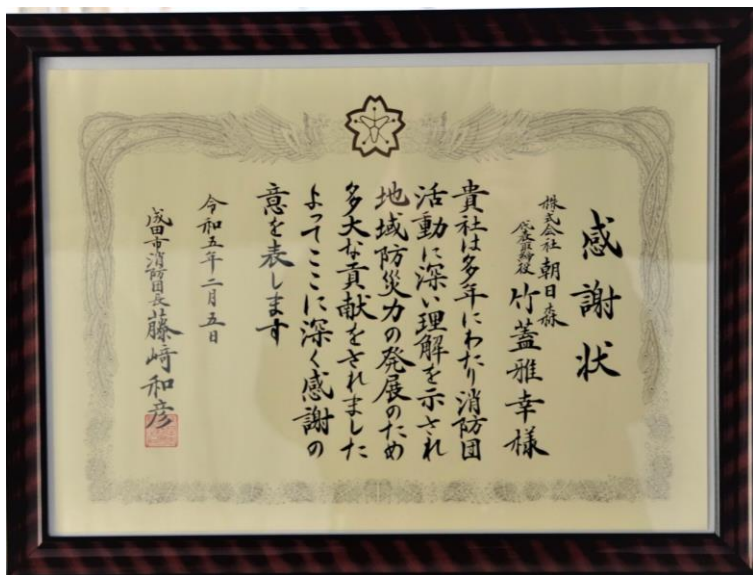 感謝状
株式会社 朝日森
代表取締役 竹蓋雅幸様
貴社は多年にわたり消防団
活動に深い理解を示され
地域防災力の発展のため
多大な貢献をされました
よってここに深く感謝の
意を表します
令和五年二月五日
成田市消防団長 藤﨑和彦